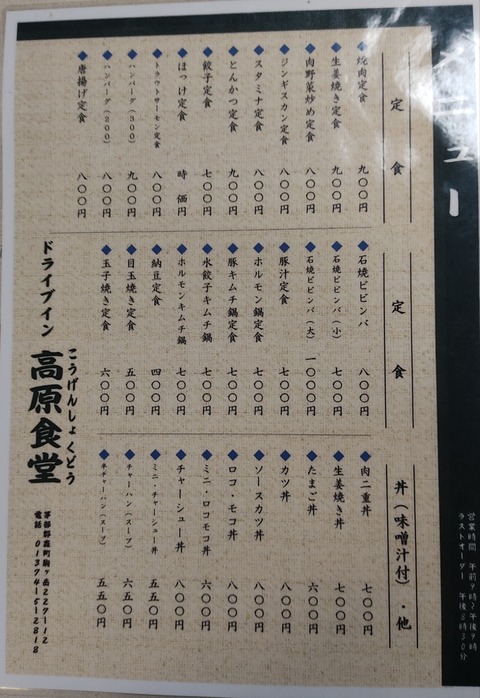 メニュー
営業時間 午前9時～午後9時
ラストオーダー 午後8時30分
定食
焼肉定食 九〇〇円
生姜焼き定食 九〇〇円
肉野菜炒め定食 八〇〇円
ジンギスカン定食 八〇〇円
スタミナ定食 八〇〇円
とんかつ定食 九〇〇円
餃子定食 七〇〇円
ほっけ定食 時価円
トラウトサーモン定食 八〇〇円
ハンバーグ(300) 九〇〇円
ハンバーグ(200) 八〇〇円
唐揚げ定食 八〇〇円
定食
石焼ビビンバ 八〇〇円
石焼ビビンバ(小) 七〇〇円
石焼ビビンバ(大) 一〇〇〇円
豚汁定食 七〇〇円
ホルモン鍋定食 七〇〇円
豚キムチ鍋定食 七〇〇円
水餃子キムチ鍋 七〇〇円
ホルモンキムチ鍋 七〇〇円
納豆定食 四〇〇円
目玉焼き定食 五〇〇円
玉子焼き定食 六〇〇円
丼(味噌汁付)・他
肉二重丼 七〇〇円
生姜焼き丼 七〇〇円
たまご丼 六〇〇円
カツ丼 八〇〇円
ソースカツ丼 八〇〇円
ロコ・モコ丼 八〇〇円
ミニ・ロコモコ丼 六〇〇円
チャーシュー丼 八〇〇円
ミニ・チャーシュー丼 五五〇円
チャーハン(スープ) 六五〇円
半チャーハン(スープ) 五五〇円
ドライブイン
こうげんしょくどう
高原食堂
茅部郡森町駒ヶ岳227-112
電話 01374-5-2818